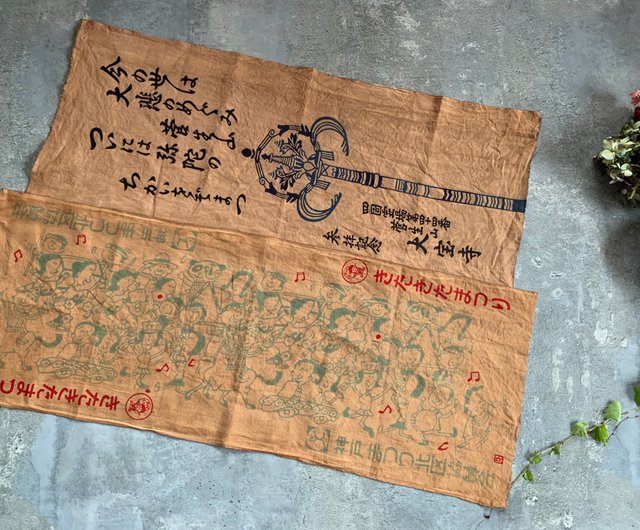 今の世は
大悲のめぐみ
菅生山
ついには弥陀の
ちかいをぞまつ
四国霊場第四十四番
菅生山
大宝寺
参拝記念
きたきたまつり
きたきたまつ